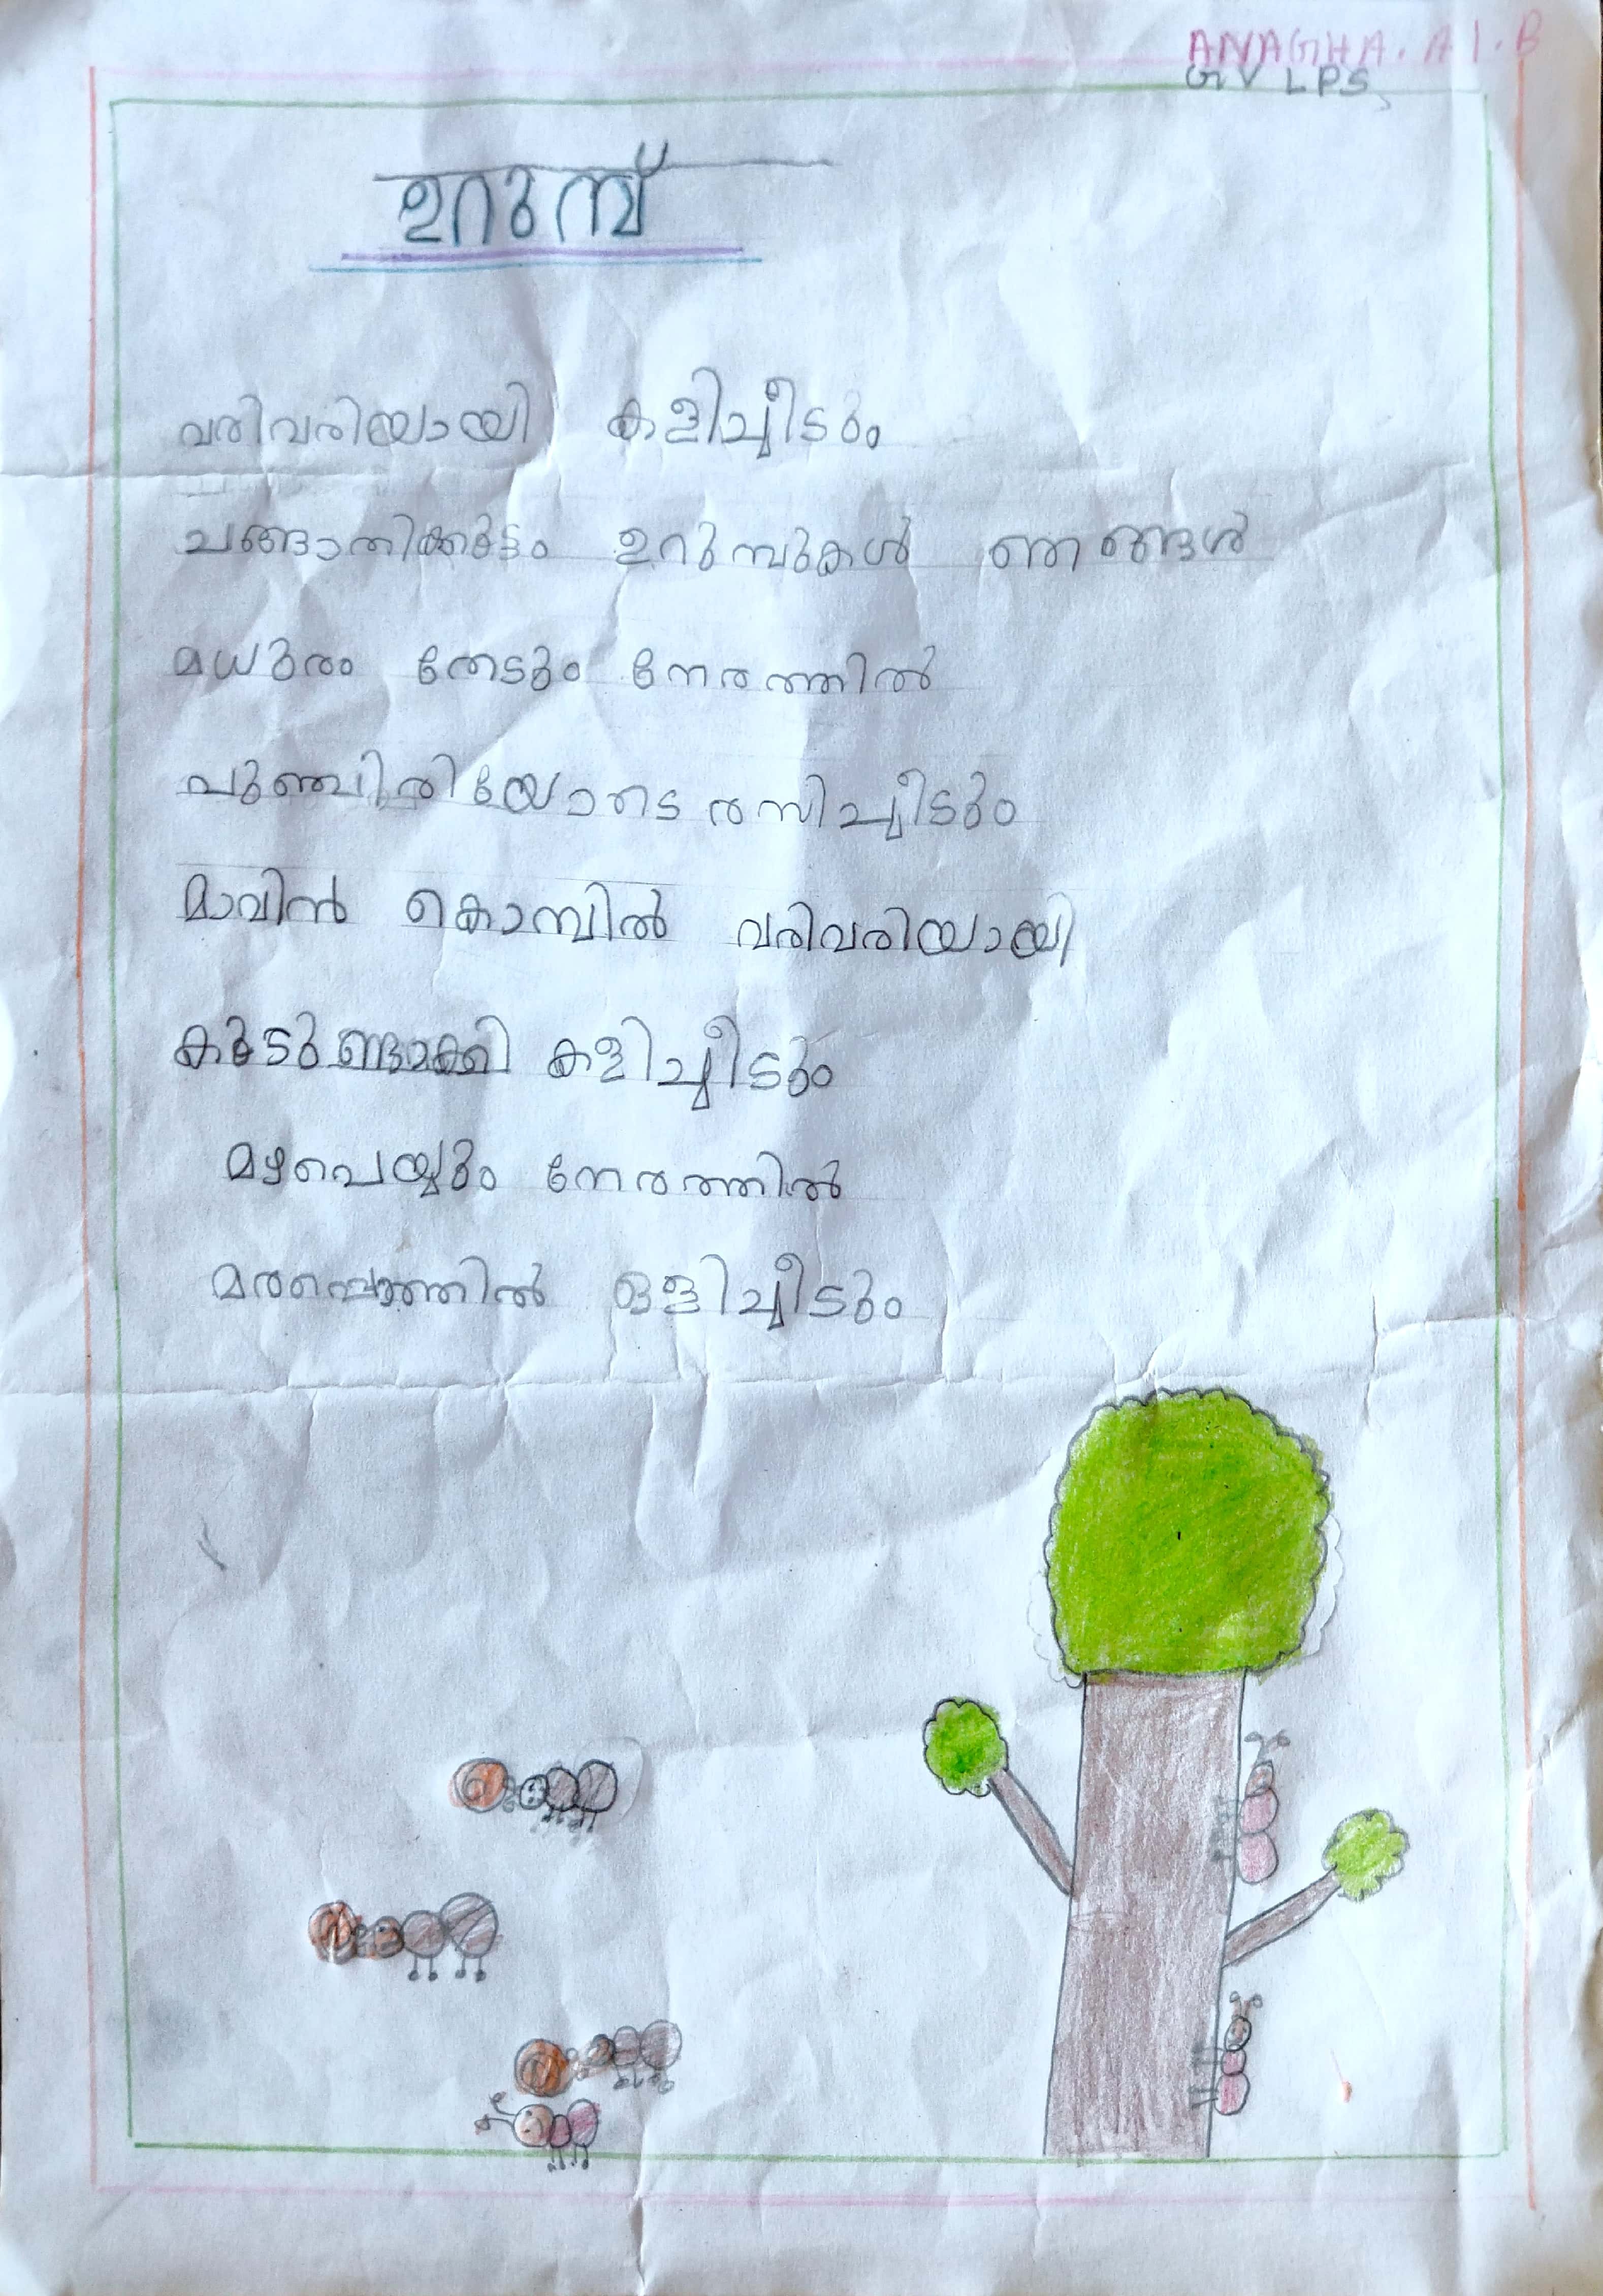 ANAGHA. A 1. B
GV LPS
ഉറുമ്പ്
വരിവരിയായി കളിച്ചീടും
ചങ്ങാതിക്കൂട്ടം ഉറുമ്പുകൾ ഞങ്ങൾ
മധുരം തേടും നേരത്തിൽ
പുഞ്ചിരിയോടെ രസിച്ചീടും
മാവിൻ കൊമ്പിൽ വരിവരിയായി
കൂടുണ്ടാക്കി കളിച്ചീടും
മഴപെയ്യും നേരത്തിൽ
മരപ്പൊത്തിൽ ഒളിച്ചീടും